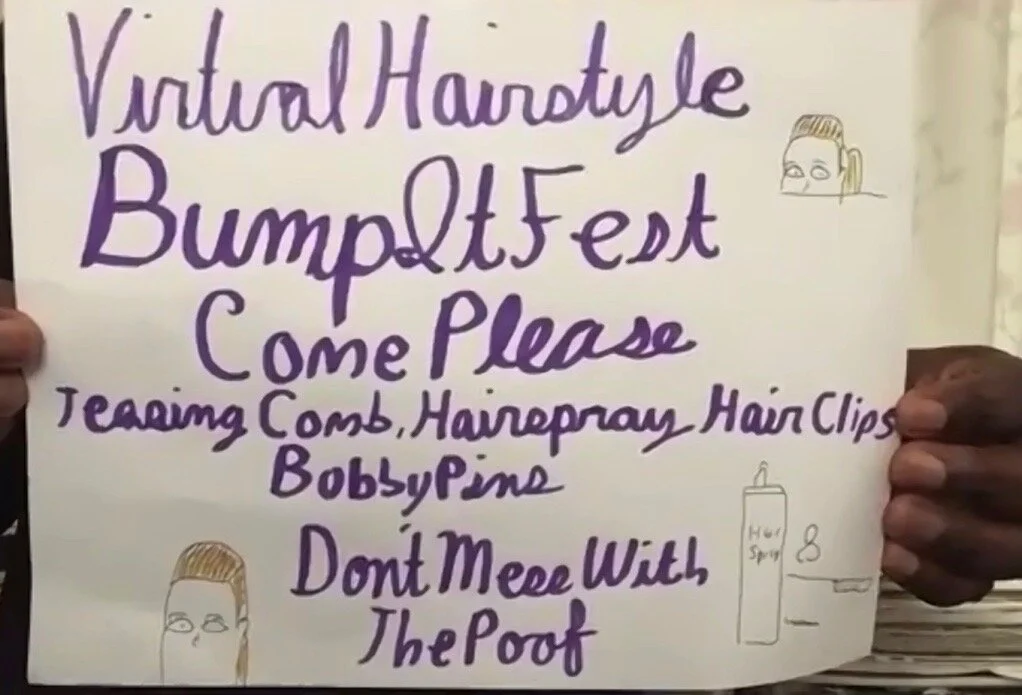 Virtual Hairstyle
BumpItFest
Come Please
Teasing Comb, Hairspray Hair Clips
Bobby Pins
Don't Mess With
The Poof
Hair
Spray